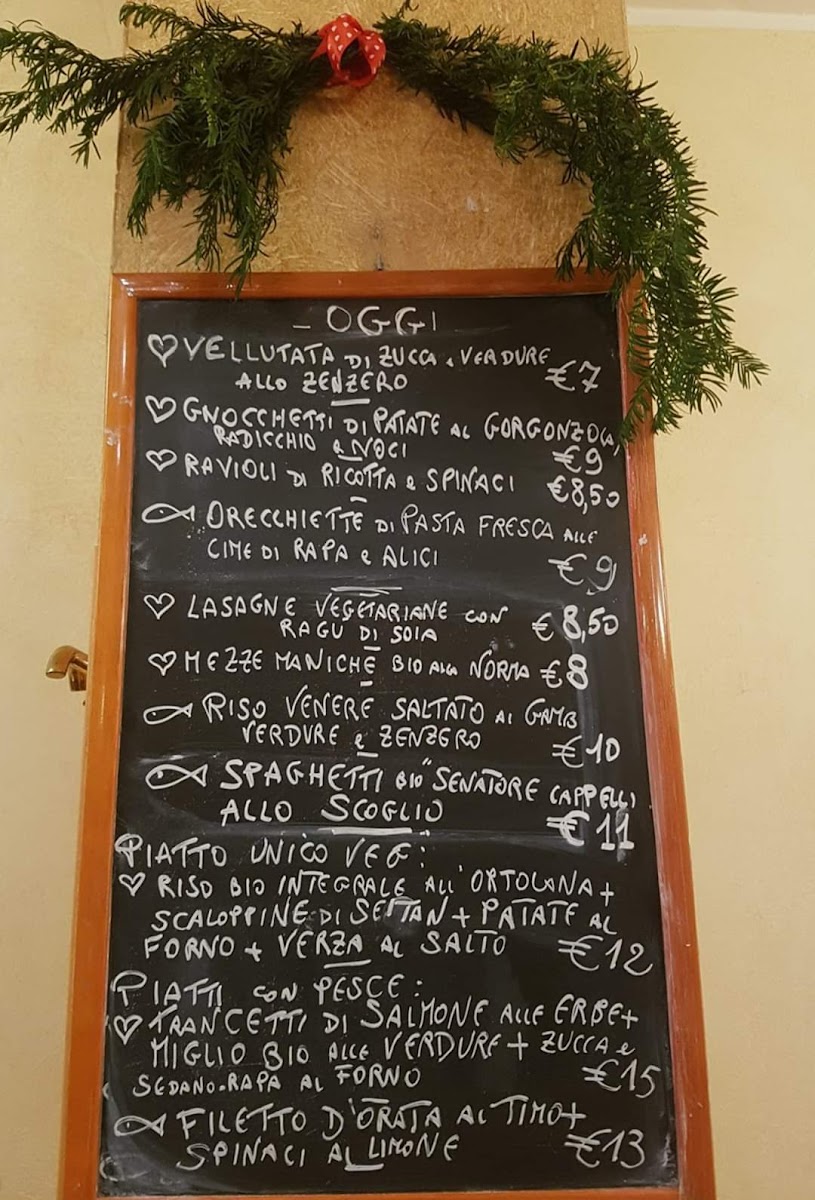 - OGGI
VELLUTATA DI ZUCCA e VERDURE
ALLO ZENZERO €7
GNOCCHETTI DI PATATE AL GORGONZOLA,
RADICCHIO e NOCI €9
RAVIOLI DI RICOTTA e SPINACI €8,50
ORECCHIETTE DI PASTA FRESCA ALLE
CIME DI RAPA e ALICI €9
LASAGNE VEGETARIANE CON
RAGU DI SOIA €8,50
MEZZE MANICHE BIO ALLA NORMA €8
RISO VENERE SALTATO AI GAMB
VERDURE e ZENZERO €10
SPAGHETTI BIO "SENATORE CAPPELLI
ALLO SCOGLIO €11
PIATTO UNICO VEG:
RISO BIO INTEGRALE ALL'ORTOLANA +
SCALOPPINE DI SEITAN + PATATE AL
FORNO + VERZA AL SALTO €12
PIATTI CON PESCE:
TRANCETTI DI SALMONE ALLE ERBE +
MIGLIO BIO ALLE VERDURE + ZUCCA e
SEDANO-RAPA AL FORNO €15
FILETTO D'ORATA AL TIMO +
SPINACI AL LIMONE €13